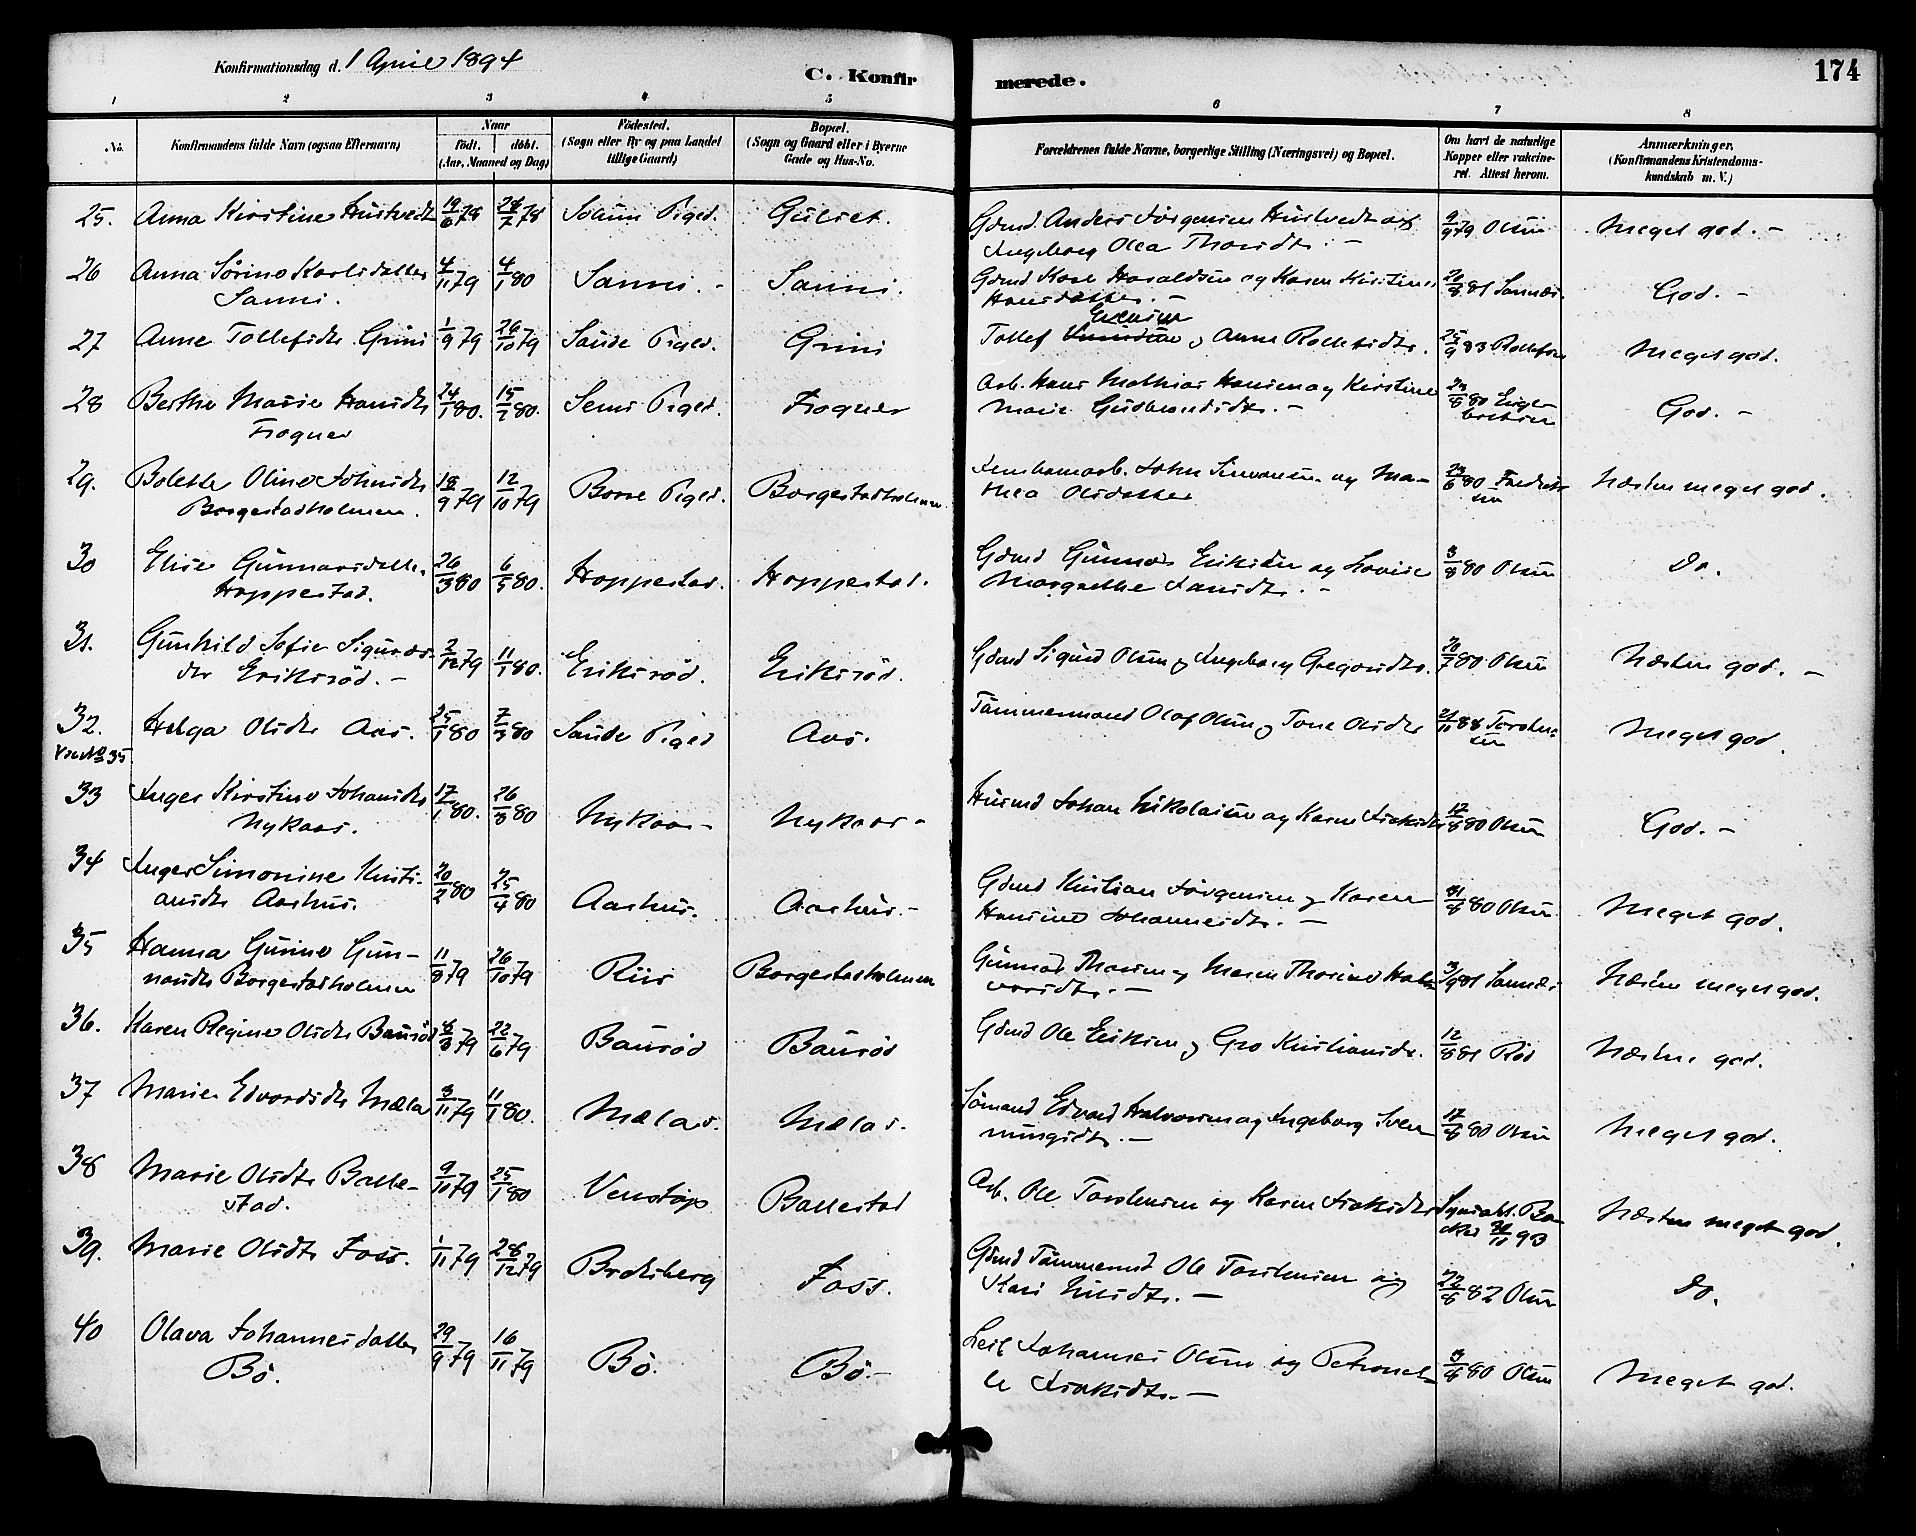 Konfirmationsdag d. 1 April 1894
C. Konfirmerede.
174
1 2 3 4 5 6 7 8
No.
Konfirmandens fulde Navn (ogsaa Efternavn)
Naar
Födt. döbt.
(Aar, Maaned og Dag)
Födested.
(Sogn eller By og paa Landet
tillige Gaard)
Bopæl.
(Sogn og Gaard eller i Byerne
Gade og Hus-No.
Forældrenes fulde Navne, borgerlige Stilling (Næringsvei) og Bopæl.
Om havt de naturlige
Kopper eller vaccine-
ret. Attest herom.
Anmærkninger.
(Konfirmandens Kristendoms-
kundskab m. V.)
25. Anna Kirstine Hustvedt 19/6 78 28/7 78 Solum Pgd. Gulset. Gbmd. Anders Jörgensen Hustvedt og 9/9 79 Olsen Meget god. -
Ingeborg Olea Thorsdtr. -
26 Anna Sörine Karlsdatter 4/11 79 4/1 80 Sanni. - Sanni. Gbmd Karl Haraldsen og Karen Kirstine 20/8 81 Sannæs. God. -
Sanni. Hansdatter. -
27 Anne Tollefsdtr. Grini 1/9 79 26/10 79 Saude Pgd. Grini Tollef Evensen og Anne Rollefsdtr. 25/9 83 Rollefsen Meget god.
28 Berthe Marie Hansdtr 24/1 80. 15/2 80. Sems Pgd. Frogner Arb. Hans Mathias Hansen og Kirstine 23/8 80 Enge- God. -
Frogner Marie Gudbrandsdtr. - bretsen
29. Bolette Oline Johnsdtr 18/9 79 12/10 79 Borre Pgd. Borgestadholmen John Simonsen og Ma- 23/6 80 Fredrik- Næsten meget god.
Borgestadholmen. thea Olsdatter sen
30 Elise Gunnarsdatter 26/3 80 6/5 80. Hoppestad. Hoppestad. Gbmd Gunnar Eriksen og Lovise 3/8 80 Olsen Do.
Hoppestad. Margrethe Jansdtr. -
31. Gunhild Sofie Sigurds- 2/12 79 11/1 80. Eriksröd. Eriksröd. Gbmd Sigurd Olsen og Ingeborg Gregorsdtr. 20/7 80 Olsen Næsten god. -
dtr Eriksröd. -
32. Helga Olsdtr Aas. 25/1 80 7/3 80 Saude Pgd Aas. Tömmermand Olaf Olsen og Tone Olsdtr 21/11 88 Torsten- Meget god.
sen
33 Inger Kirstine Johansdtr 17/1 80. 26/3 80 Nykaas - Nykaas - Husmd Johan Nikolaisen og Karen Isaksdtr 12/8 80 Olsen God. -
Nykaas.
34 Inger Simonine Kristi- 20/2 80 25/4 80 Aashus. Aashus. - Gbmd Kristian Jörgensen og Karen 31/8 80 Olsen Meget god.
ansdtr Aashus. Hansine Johannesdtr. -
35 Hanna Gurine Gun- 11/8 79 26/10 79 Riis Borgestadholmen Gunnar Thorsen og Maren Thorine Hal- 3/9 81 Sannæs Næsten meget god.
narsdtr Borgestadholmen vorsdtr. -
36. Karen Regine Olsdtr Bauröd 8/3 79 22/6 79 Bauröd Bauröd Gbmd Ole Eriksen og Gro Kristiansdtr. 12/8 81 Röd Næsten god.
37 Marie Edvardsdtr Mæla 3/11 79 11/1 80. Mælas. Mælas. Sömand Edvard Halvorsen og Ingeborg Sven- 17/8 80 Olsen Meget god.
nungsdtr. -
38 Marie Olsdtr Balle- 9/10 79 25/1 80 Venstöp Ballestad Arb. Ole Torstensen og Karen Isaksdtr Næsten meget god.
stad.
39. Marie Olsdtr Foss. 1/11 79 28/12 79 Bratsberg Foss. Gbmd Tömmermd Ole Torstensen og 22/8 82 Olsen Do.
Kari Nilsdtr. -
40 Olava Johannesdatter 29/9 79 16/11 79 Bö. Bö. - Leil. Johannes Olsen og Petronel- 3/8 80 Olsen Meget god.
Bö. le Isaksdtr. -